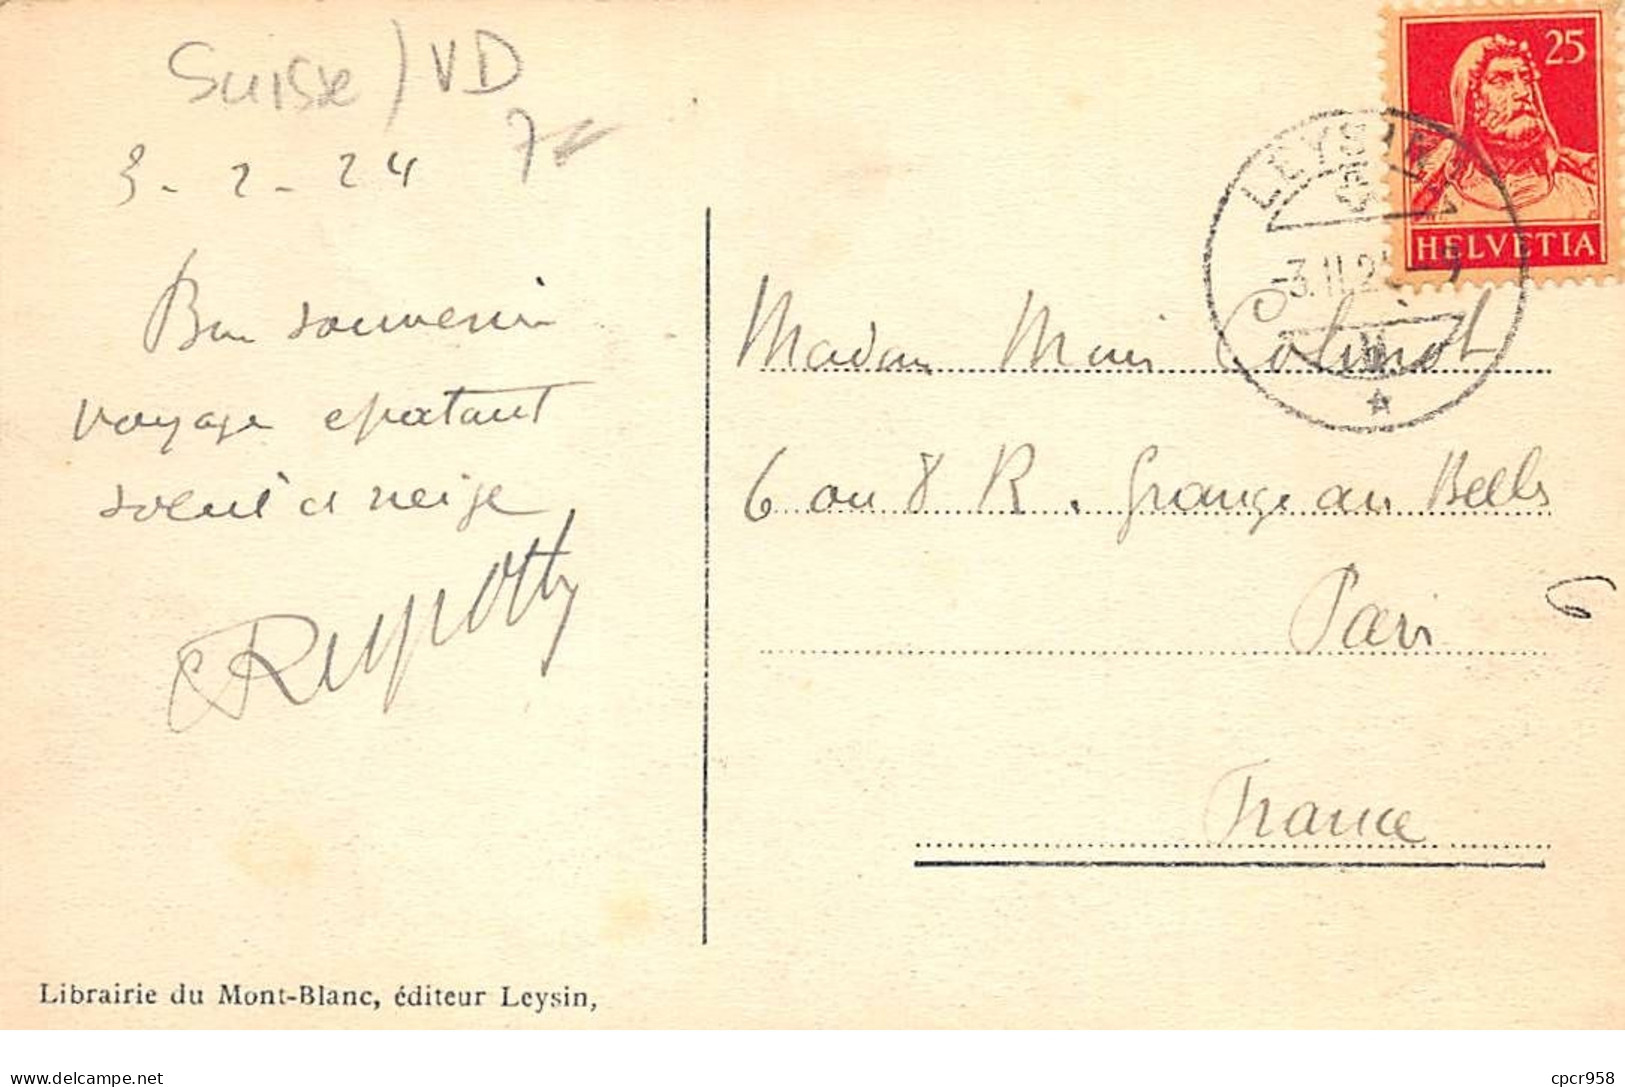 Suisse / VD
3 - 2 - 24
Bon souvenir
voyage epatant
soleil et neige
25
HELVETIA
LEYSIN
-3.II.2
Madame Marie Colinot
6 ou 8 R. Grange aux Belles
Paris
6
France
Librairie du Mont-Blanc, éditeur Leysin,
delcampe.net
cpcr958